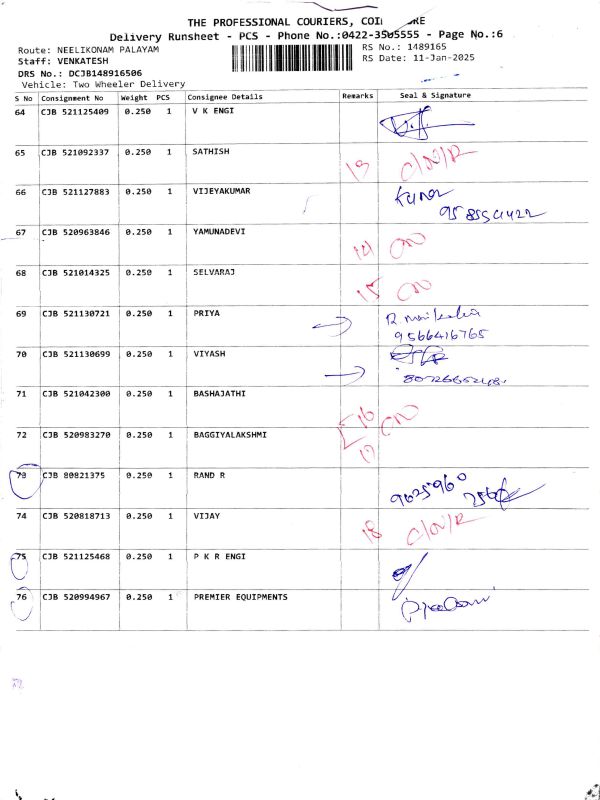 THE PROFESSIONAL COURIERS,
Delivery Runsheet - PCS - Phone No.:0422-3505555 - Page No.:6
Route: NEELIKONAM PALAYAM
RS No.: 1489165
Staff: VENKATESH
RS Date: 11-Jan-2025
DRS No.: DCJB148916506
Vehicle: Two Wheeler Delivery
S No Consignment No Weight PCS Consignee Details Remarks Seal & Signature
64 CJB 521125409 0.250 1 V K ENGI
65 CJB 521092337 0.250 1 SATHISH 13 C/N/R
66 CJB 521127883 0.250 1 VIJEYAKUMAR Kumar
67 CJB 520963846 0.250 1 YAMUNADEVI 14
68 CJB 521014325 0.250 1 SELVARAJ 15
69 CJB 521130721 0.250 1 PRIYA
9566416765
70 CJB 521130699 0.250 1 VIYASH
71 CJB 521042300 0.250 1 BASHAJATHI 16
72 CJB 520983270 0.250 1 BAGGIYALAKSHMI 17
73 CJB 80821375 0.250 1 RAND R
74 CJB 520818713 0.250 1 VIJAY 18 C/N/R
75 CJB 521125468 0.250 1 P K R ENGI
76 CJB 520994967 0.250 1 PREMIER EQUIPMENTS